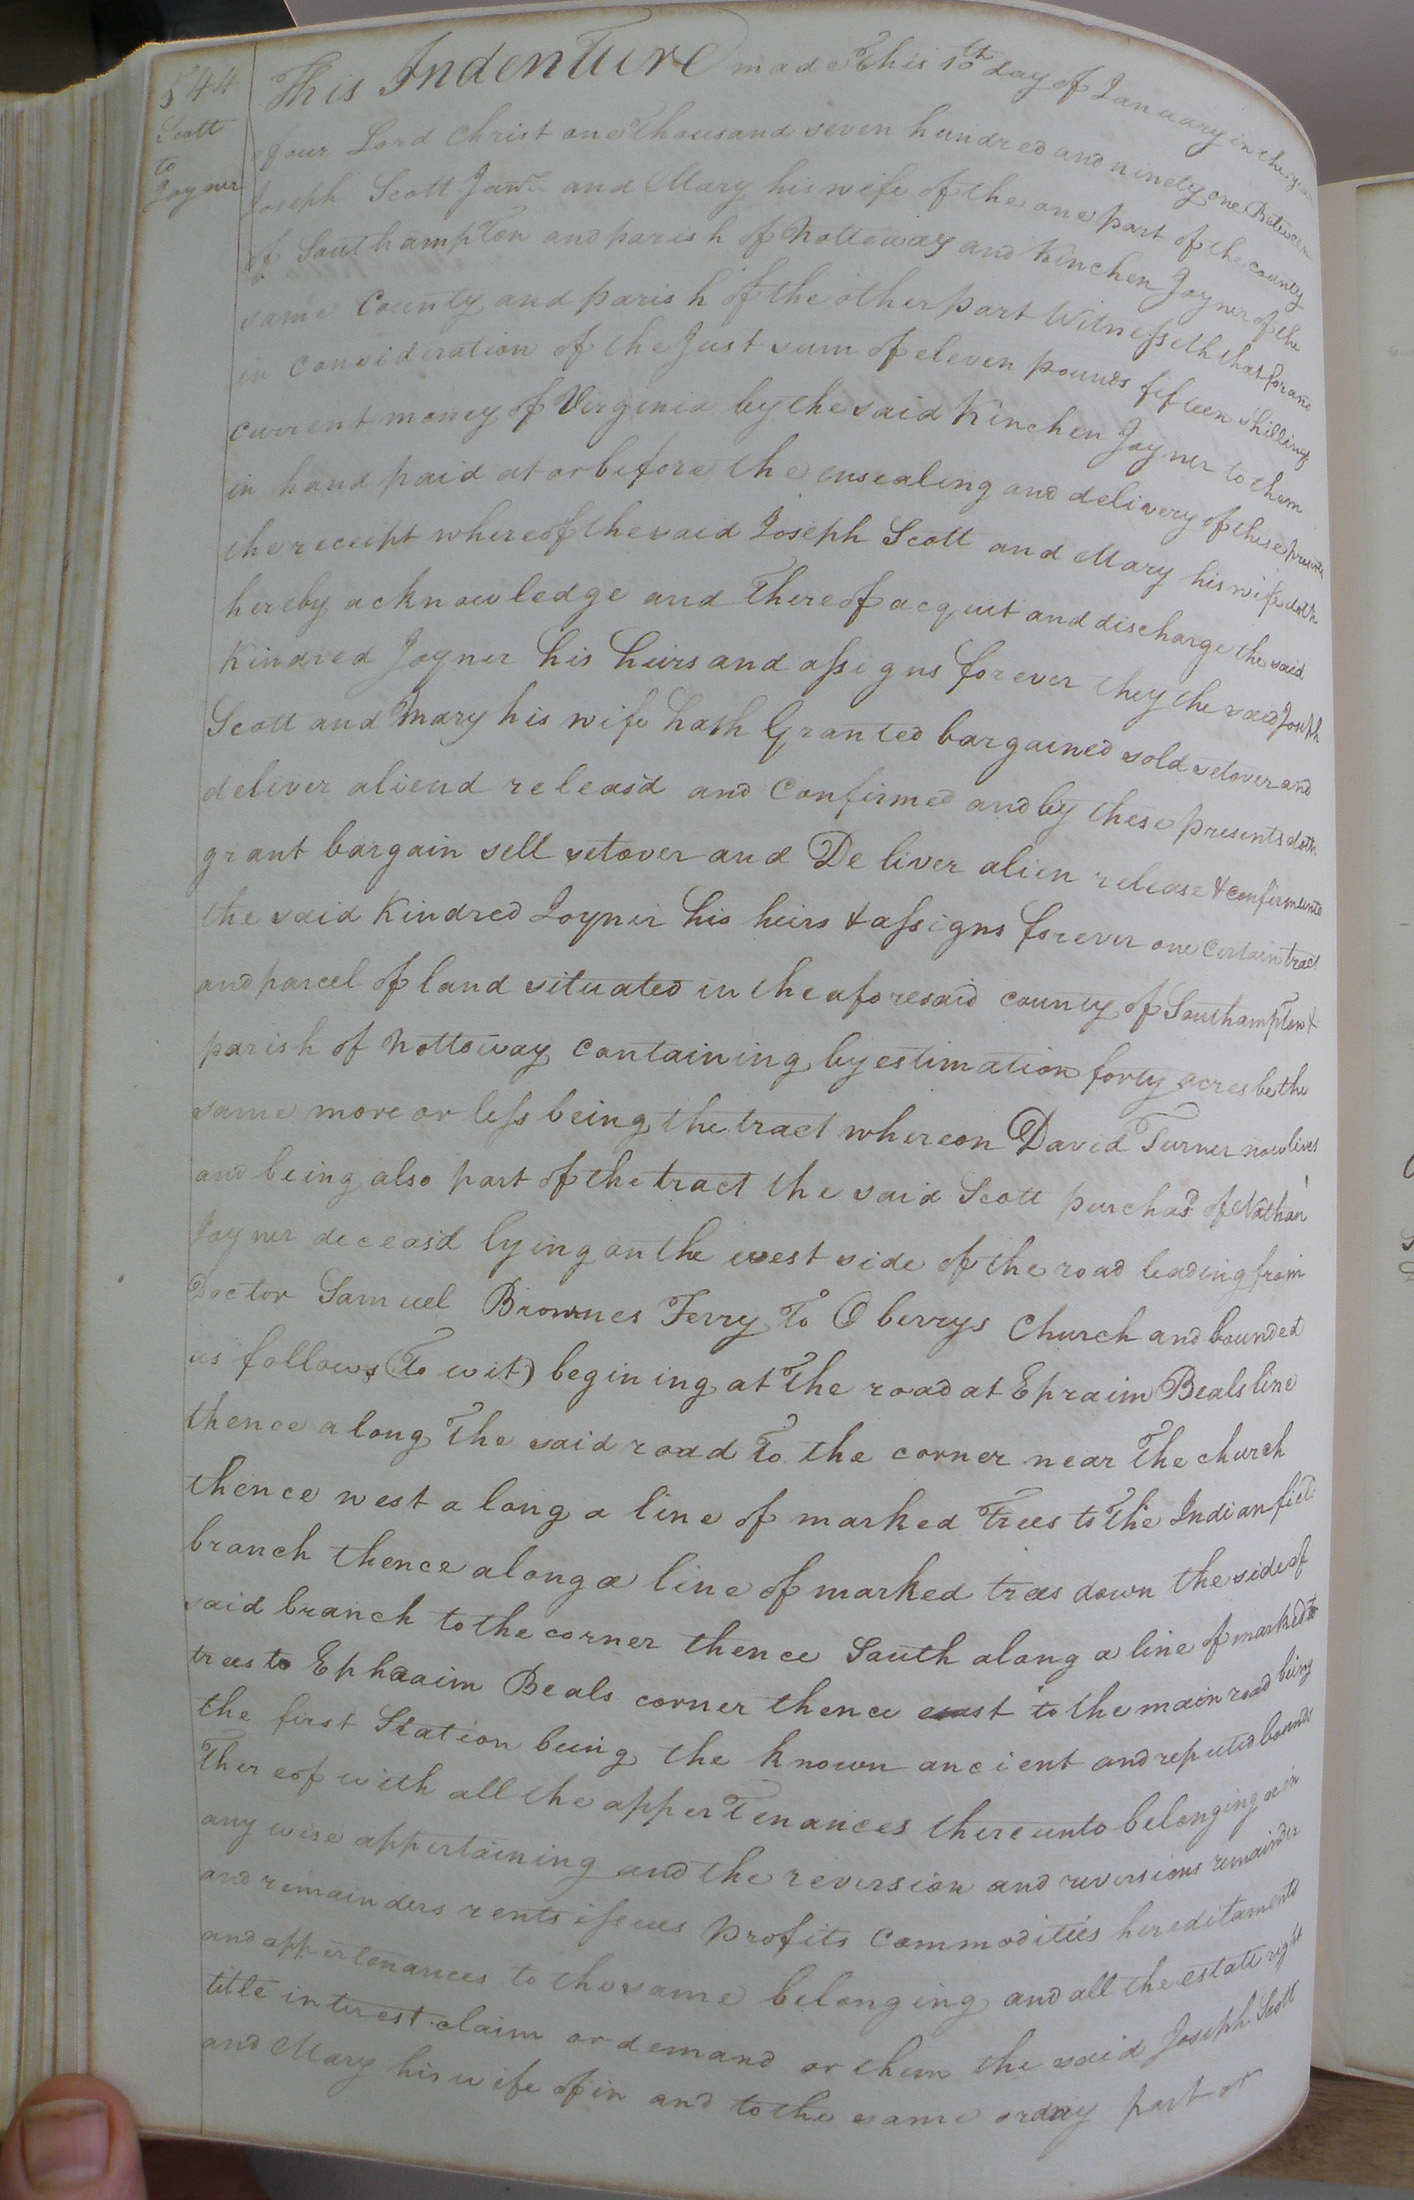 544
Scott
to
Joyner
This Indenture made This 10th day of January in the year
of our Lord Christ one Thousand seven hundred and ninety one Between
Joseph Scott and Mary his wife of the one part of the county
of Southampton and parish of Nottoway and Kinchen Joyner of the
same County and parish of the other part Witnesseth that for and
in consideration of the Just sum of eleven pounds fifteen shillings
current money of Virginia by the said Kinchen Joyner to them
in hand paid at or before the ensealing and delivery of these presents
the receipt whereof the said Joseph Scott and Mary his wife doth
hereby acknowledge and Thereof acquit and discharge the said
Kindred Joyner his heirs and assigns forever they the said Joseph
Scott and Mary his wife hath Granted bargained sold setover and
deliver aliend releas'd and Confirmed and by these presents doth
grant bargain sell setover and Deliver alien release & confirm unto
the said Kindred Joyner his heirs & assigns forever one certain tract
and parcel of land situated in the aforesaid county of Southampton &
parish of Nottoway containing by estimation forty acres be the
same more or less being the tract whereon David Turner now lives
and being also part of the tract the said Scott purchas'd of Nathan
Joyner deceas'd lying on the west side of the road leading from
Doctor Samuel Brownes Ferry To Oberrys Church and bounded
as follows (To wit) begining at The road at Epraim Beals line
thence along The said road To the corner near The church
thence west along a line of marked Trees to The Indian field
branch thence along a line of marked trees down the side of
said branch to the corner thence South along a line of marked
trees to Ephraim Beals corner thence east to the main road being
the first Station being the known ancient and reputed bounds
Thereof with all the apperTenances thereunto belonging or in
any wise appertaining and the reversion and reversions remainder
and remainders rents issues Profits Commodities hereditaments
and appertenances to the same belonging and all the estate right
title interest claim or demand or them the said Joseph Scott
and Mary his wife of in and to the same or any part or